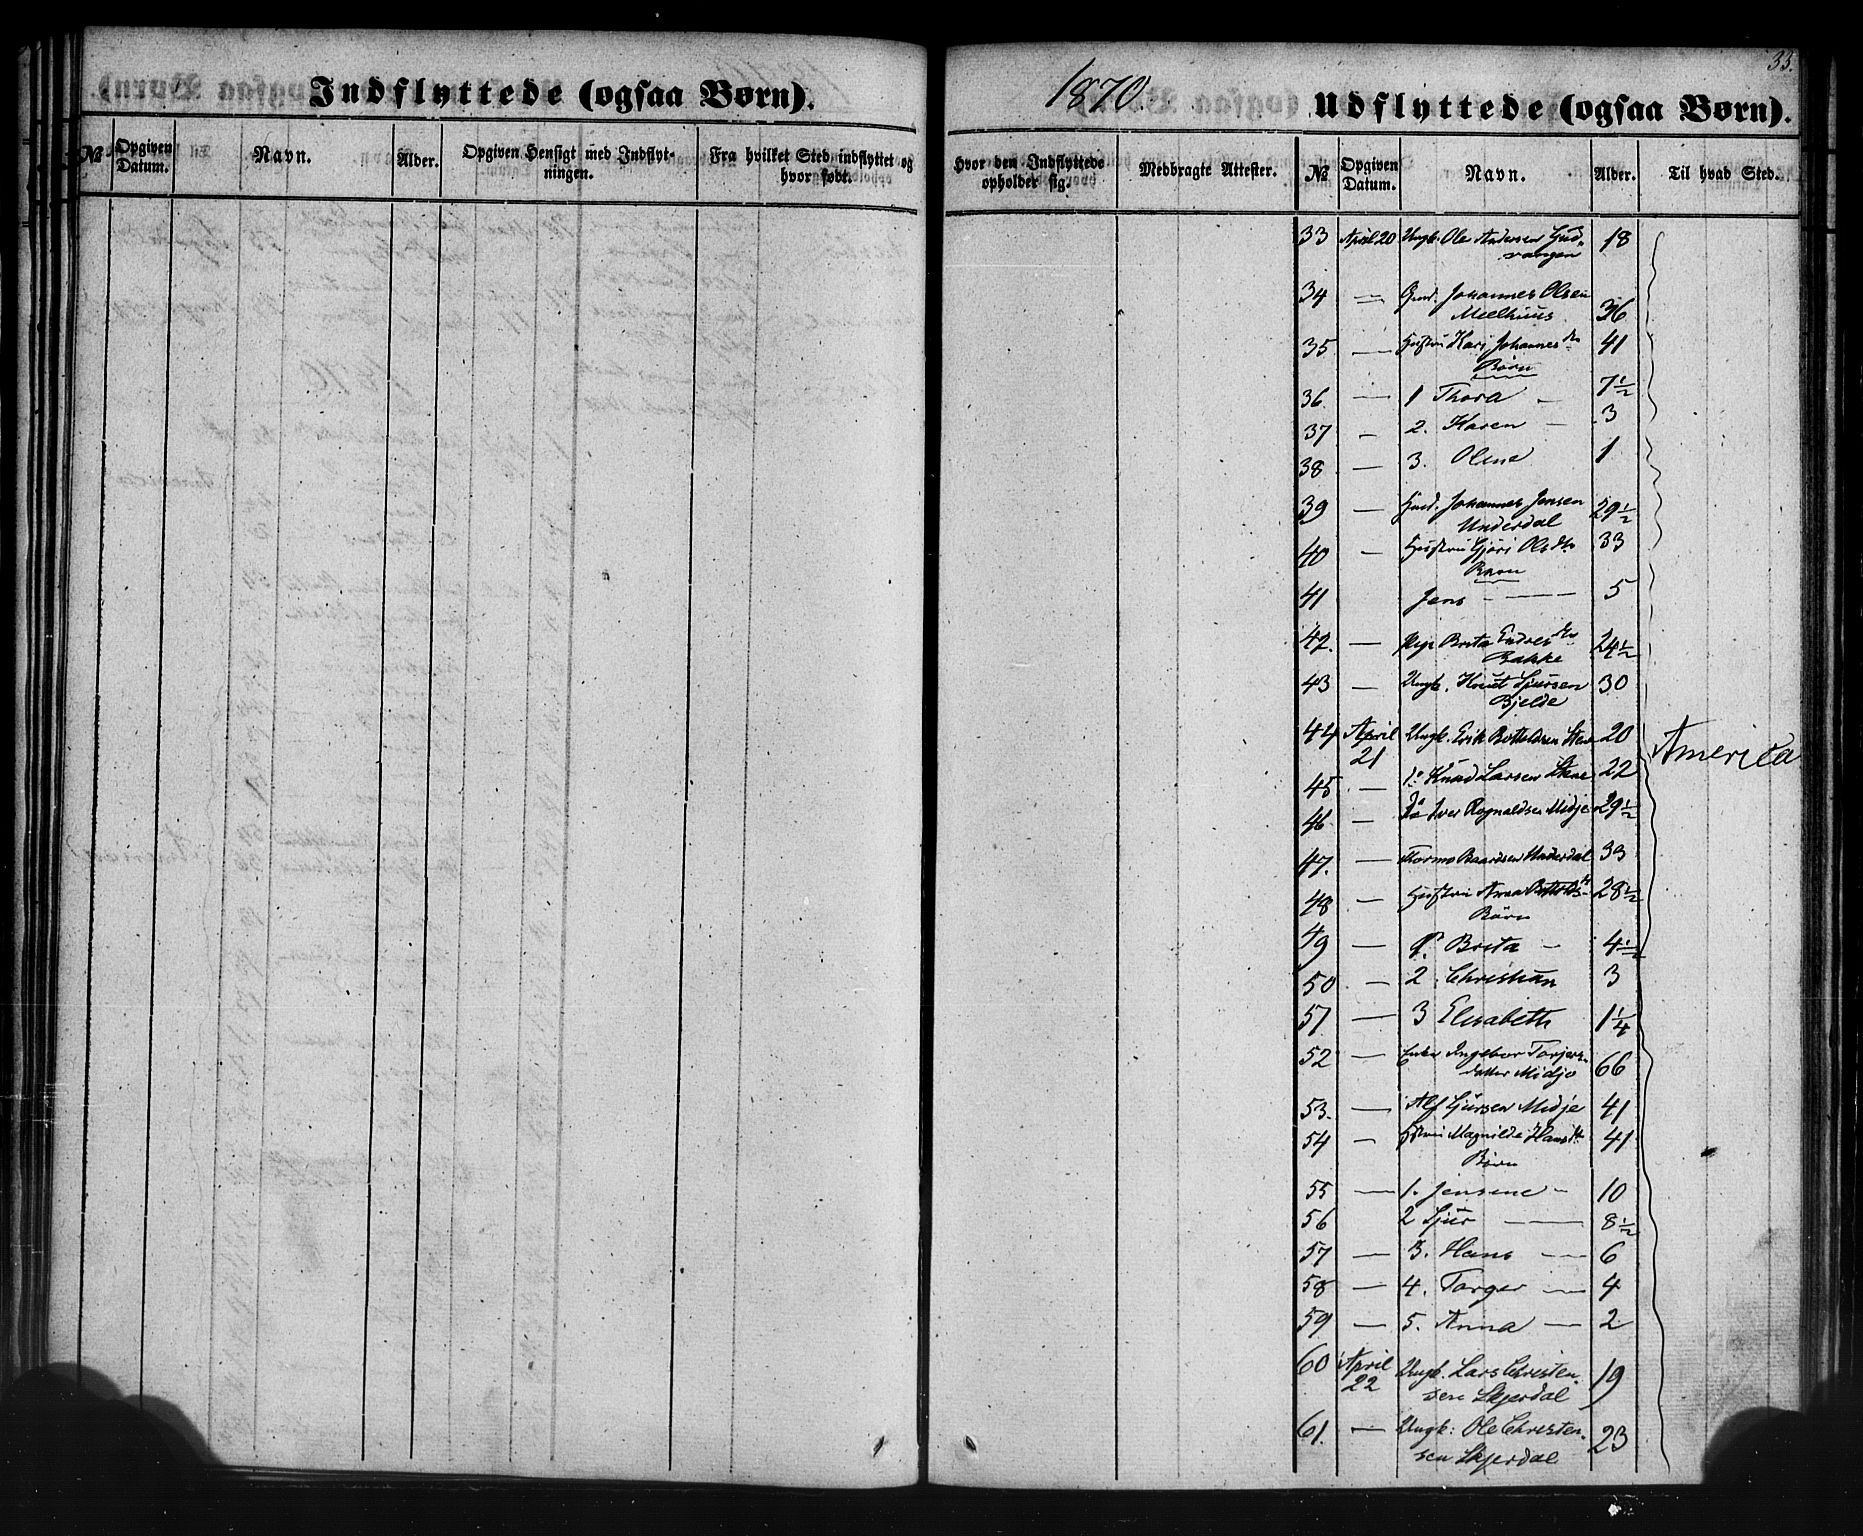 Indflyttede (ogsaa Børn).
1870.
Udflyttede (ogsaa Børn).
33.
No
Opgiven Datum.
Navn.
Alder.
Opgiven Hensigt med Indflyt-
ningen.
Fra hvilket Sted indflyttet og
hvor født.
Hvor den Indflyttede
opholder sig.
Medbragte Attester.
No
Opgiven Datum.
Navn.
Alder.
Til hvad Sted.
33 April 20 Ungk. Ole Andersen Gud-
vangen 18
34 — Gmd. Johannes Olsen
Meelhuus 36
35 — Hustru Kari Johannesdtr 41
Børn
36. — 1 Thora — 7½
37 — 2. Karen — 3
38 — 3. Olene 1
39 — Gmd. Johannes Jensen 29½
Underdal
40 — Hustru Gjøri Olsdtr 33
Barn
41 Jens — — — 5
42. — Pige Brita Endresdtr 24½
Bakke
43 — Ungk. Knut Sjursen 30
Bjelde
44 April 21 Ungk. Erik Botholdsen Stene 20
America
45 — do Knud Larsen Stene 22
46 — do Iver Rognaldsen Midje 29½
47. — Thormo Baardsen Underdal 33
48 — Hustru Anna Botholdsdtr 28½
Børn
49 — 1. Brita — 4½
50 — 2. Christian 3
51 — 3 Elisabeth 1¼
52 — Enke Ingebor Torjers-
datter Midje 66
53. — Alf Sjursen Midje 41
54 — Hustru Magnilde Hansdtr 41
Børn
55 — 1. Jensene — 10
56 2 Sjur — 8½
57 — 3. Hans — 6
58 — 4. Torger — 4
59 — 5. Anna — 2
60 April 22 Ungk. Lars Christen-
sen Skjerdal 19
61. — Ungk: Ole Christen-
sen Skjerdal 23